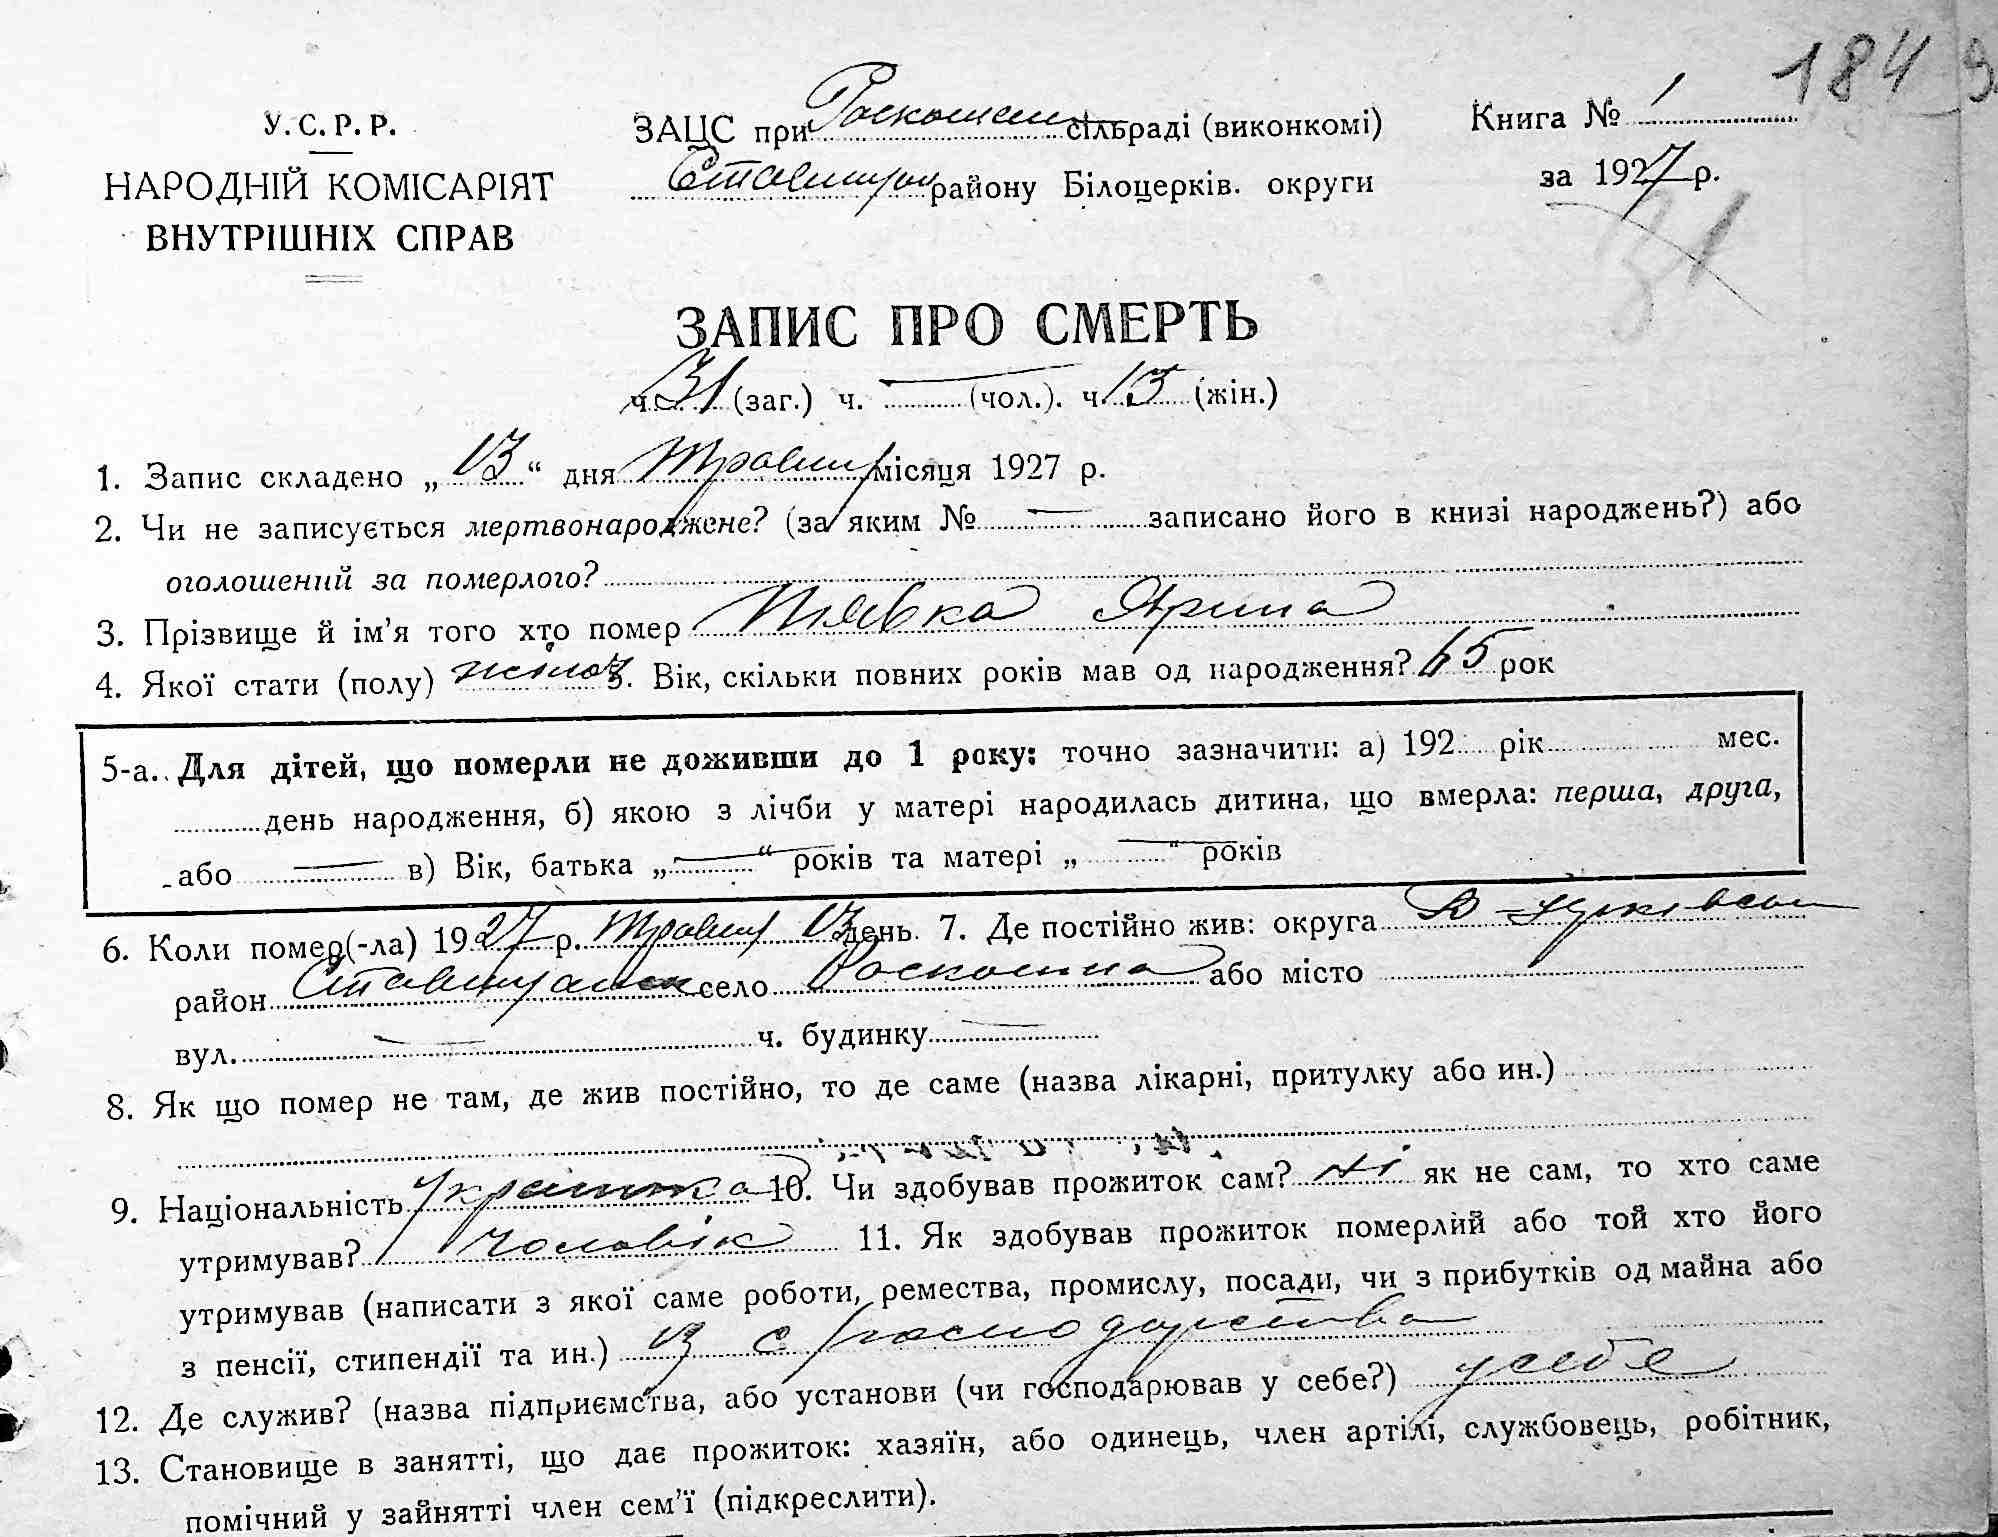 184
У.С.Р.Р.
НАРОДНІЙ КОМІСАРІЯТ
ВНУТРІШНІХ СПРАВ
ЗАЦС при Роскошен сільраді (виконкомі)
Ставищан району Білоцерків. округи
Книга № 1
за 1927 р.
31
ЗАПИС ПРО СМЕРТЬ
ч. 31 (заг.) ч. — (чол.). ч. 13 (жін.)
1. Запис складено „ 13 “ дня Травня місяця 1927 р.
2. Чи не записується мертвонароджене? (за яким № — записано його в книзі народжень?) або
оголошений за померлого?
3. Прізвище й ім’я того хто помер Пявка Ярина
4. Якої стати (полу) жіноч 5. Вік, скільки повних років мав од народження? 65 рок
5-а. Для дітей, що померли не доживши до 1 року: точно зазначити: а) 192 рік мес.
день народження, б) якою з лічби у матері народилась дитина, що вмерла: перша, друга,
або — в) Вік, батька „ — “ років та матері „ — “ років
6. Коли помер(-ла) 1927 р. Травня 13 день 7. Де постійно жив: округа Б-Церківськ
район Ставищанськ село Роскошна або місто
вул. — ч. будинку —
8. Як що помер не там, де жив постійно, то де саме (назва лікарні, притулку або ин.)
9. Національність Українка 10. Чи здобував прожиток сам? Ні як не сам, то хто саме
утримував? чоловік 11. Як здобував прожиток померлий або той хто його
утримував (написати з якої саме роботи, ремества, промислу, посади, чи з прибутків од майна або
з пенсії, стипендії та ин.) із с/господарства
12. Де служив? (назва підприємства, або установи (чи господарював у себе?) у себе
13. Становище в занятті, що дає прожиток: хазяїн, або одинець, член артілі, службовець, робітник,
помічний у зайнятті член сем’ї (підкреслити).